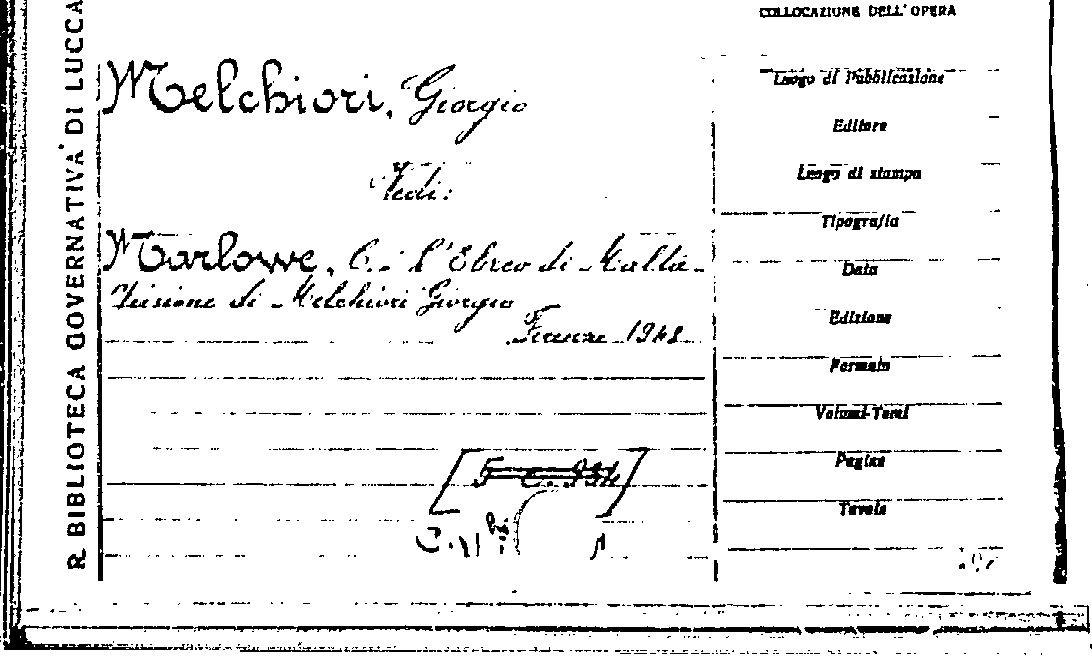 R. BIBLIOTECA GOVERNATIVA DI LUCCA
Melchiori, Giorgio
Vedi:
Marlowe, C.: l'Ebreo di Malta.
Visione di Melchiori Giorgio
Firenze 1948
COLLOCAZIONE DELL'OPERA
Luogo di Pubblicazione
Editore
Luogo di stampa
Tipografia
Data
Edizione
Formato
Volumi-Tomi
Pagine
Tavole